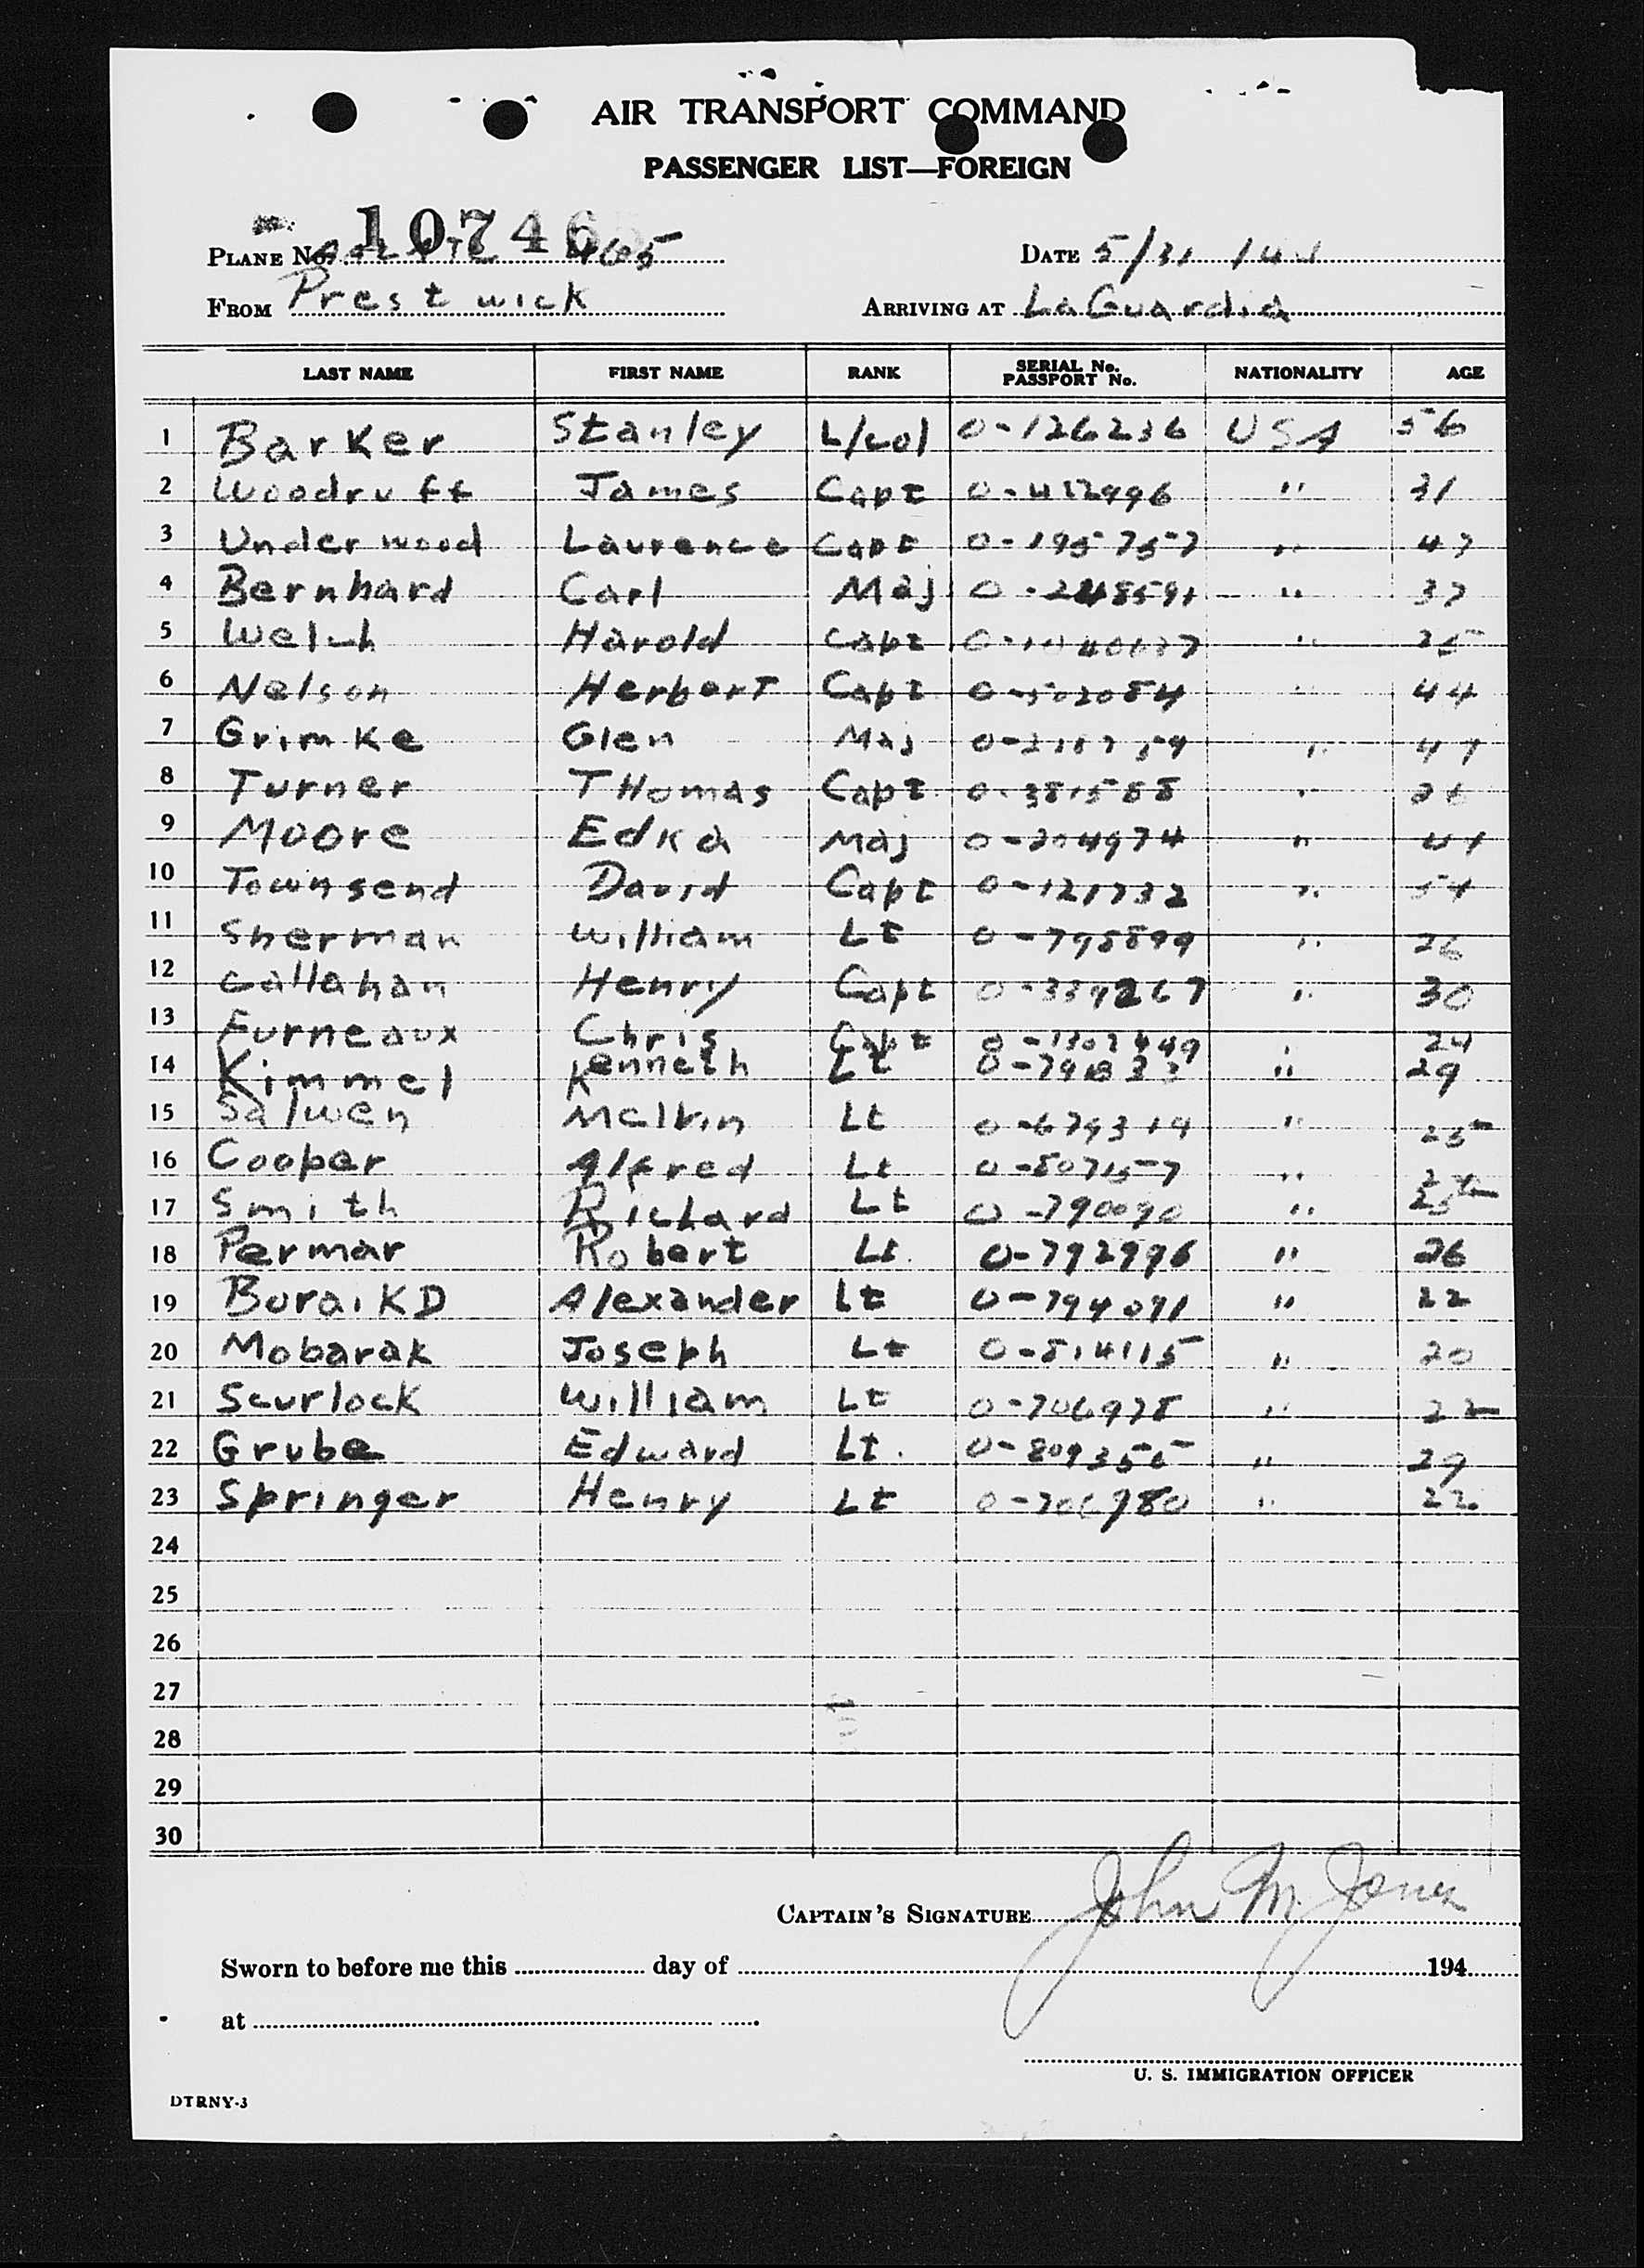 AIR TRANSPORT COMMAND
PASSENGER LIST—FOREIGN
10746
PLANE No. 465 DATE 5/31/44
FROM Prestwick ARRIVING AT LaGuardia
LAST NAME FIRST NAME RANK SERIAL No. PASSPORT No. NATIONALITY AGE
1 Barker Stanley L/Col 0-126236 USA 56
2 Woodruff James Capt " 31
3 Underwood Laurence Capt 0-1957557 " 47
4 Bernhard Carl Maj " 37
5 Welch Harold Capt "
6 Nelson Herbert Capt " 44
7 Grimke Glen Maj "
8 Turner THomas Capt 0-381588 "
9 Moore Edka Maj 0-204974 "
10 Townsend David Capt 0-121732 " 54
11 Sherman William Lt " 26
12 Callahan Henry Capt 0-339267 " 30
13 Furneaux Chris Capt "
14 Kimmel Kenneth Lt " 29
15 Salwen Melvin Lt 0-679314 " 25
16 Cooper Alfred Lt 0-807157 "
17 Smith Richard Lt 0-790090 " 25
18 Permar Robert Lt. 0-792996 " 26
19 BuraiKD Alexander Lt 0-794091 " 22
20 Mobarak Joseph Lt 0-514115 " 20
21 Scurlock William Lt 0-706978 " 22
22 Grube Edward Lt. " 29
23 Springer Henry Lt 0-706980 " 22
24
25
26
27
28
29
30
CAPTAIN'S SIGNATURE John M. Jones
Sworn to before me this day of 194
at
U. S. IMMIGRATION OFFICER
DTRNY-3